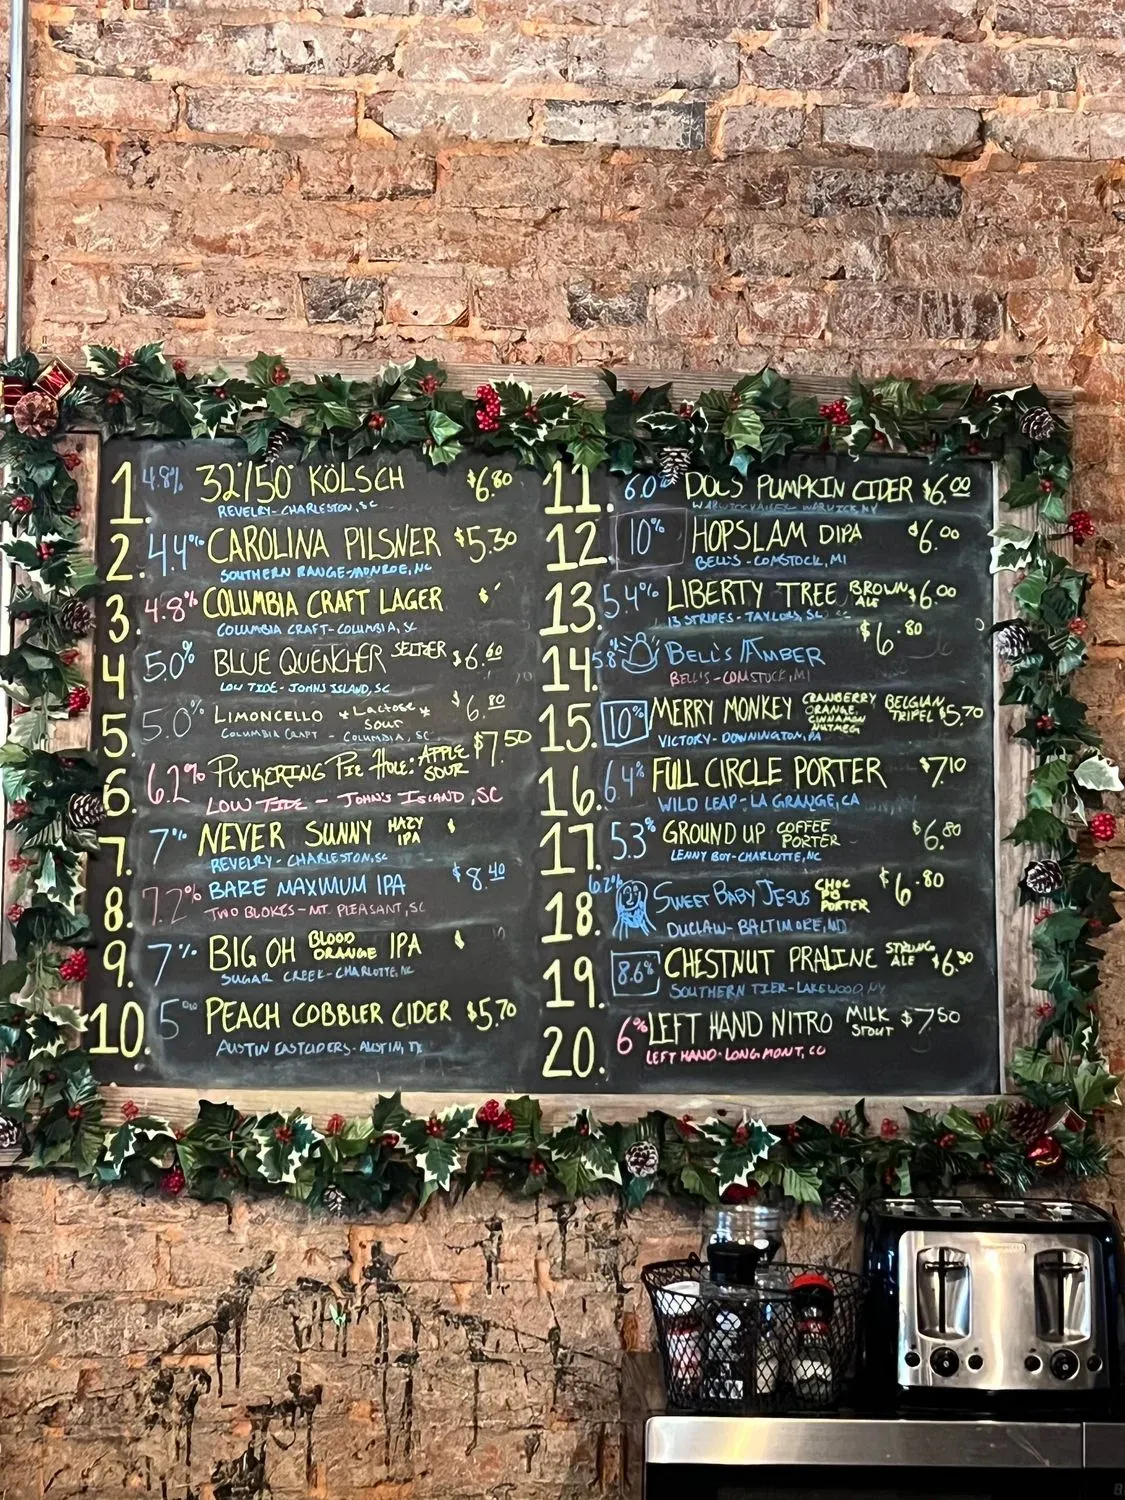 1. 4.8% 32°/50° KÖLSCH $6.80
REVELRY - CHARLESTON, SC
2. 4.4% CAROLINA PILSNER $5.30
SOUTHERN RANGE - MONROE, NC
3. 4.8% COLUMBIA CRAFT LAGER $
COLUMBIA CRAFT - COLUMBIA, SC
4. 5.0% BLUE QUENCHER SELTZER $6.60
LOW TIDE - JOHNS ISLAND, SC
5. 5.0% LIMONCELLO *LACTOSE* SOUR $6.80
COLUMBIA CRAFT - COLUMBIA, SC
6. 6.2% PUCKERING PIE HOLE: APPLE SOUR $7.50
LOW TIDE - JOHN'S ISLAND, SC
7. 7% NEVER SUNNY HAZY IPA $
REVELRY - CHARLESTON, SC
8. 7.2% BARE MAXIMUM IPA $8.40
TWO BLOKES - MT. PLEASANT, SC
9. 7% BIG OH BLOOD ORANGE IPA $
SUGAR CREEK - CHARLOTTE, NC
10. 5% PEACH COBBLER CIDER $5.70
AUSTIN EASTCIDERS - AUSTIN, TX
11. 6.0% DOC'S PUMPKIN CIDER $6.00
WARWICK VALLEY WARWICK, NY
12. 10% HOPSLAM DIPA $6.00
BELL'S - COMSTOCK, MI
13. 5.4% LIBERTY TREE BROWN ALE $6.00
13 STRIPES - TAYLORS, SC
14. 5.8% BELL'S AMBER $6.80
BELL'S - COMSTOCK, MI
15. 10% MERRY MONKEY CRANBERRY ORANGE CINNAMON NUTMEG BELGIAN TRIPEL $5.70
VICTORY - DOWNINGTON, PA
16. 6.4% FULL CIRCLE PORTER $7.10
WILD LEAP - LA GRANGE, GA
17. 5.3% GROUND UP COFFEE PORTER $6.80
LENNY BOY - CHARLOTTE, NC
18. 6.2% SWEET BABY JESUS CHOC PB PORTER $6.80
DUCLAW - BALTIMORE, MD
19. 8.6% CHESTNUT PRALINE STRONG ALE $6.30
SOUTHERN TIER - LAKEWOOD, NY
20. 6% LEFT HAND NITRO MILK STOUT $7.50
LEFT HAND - LONGMONT, CO